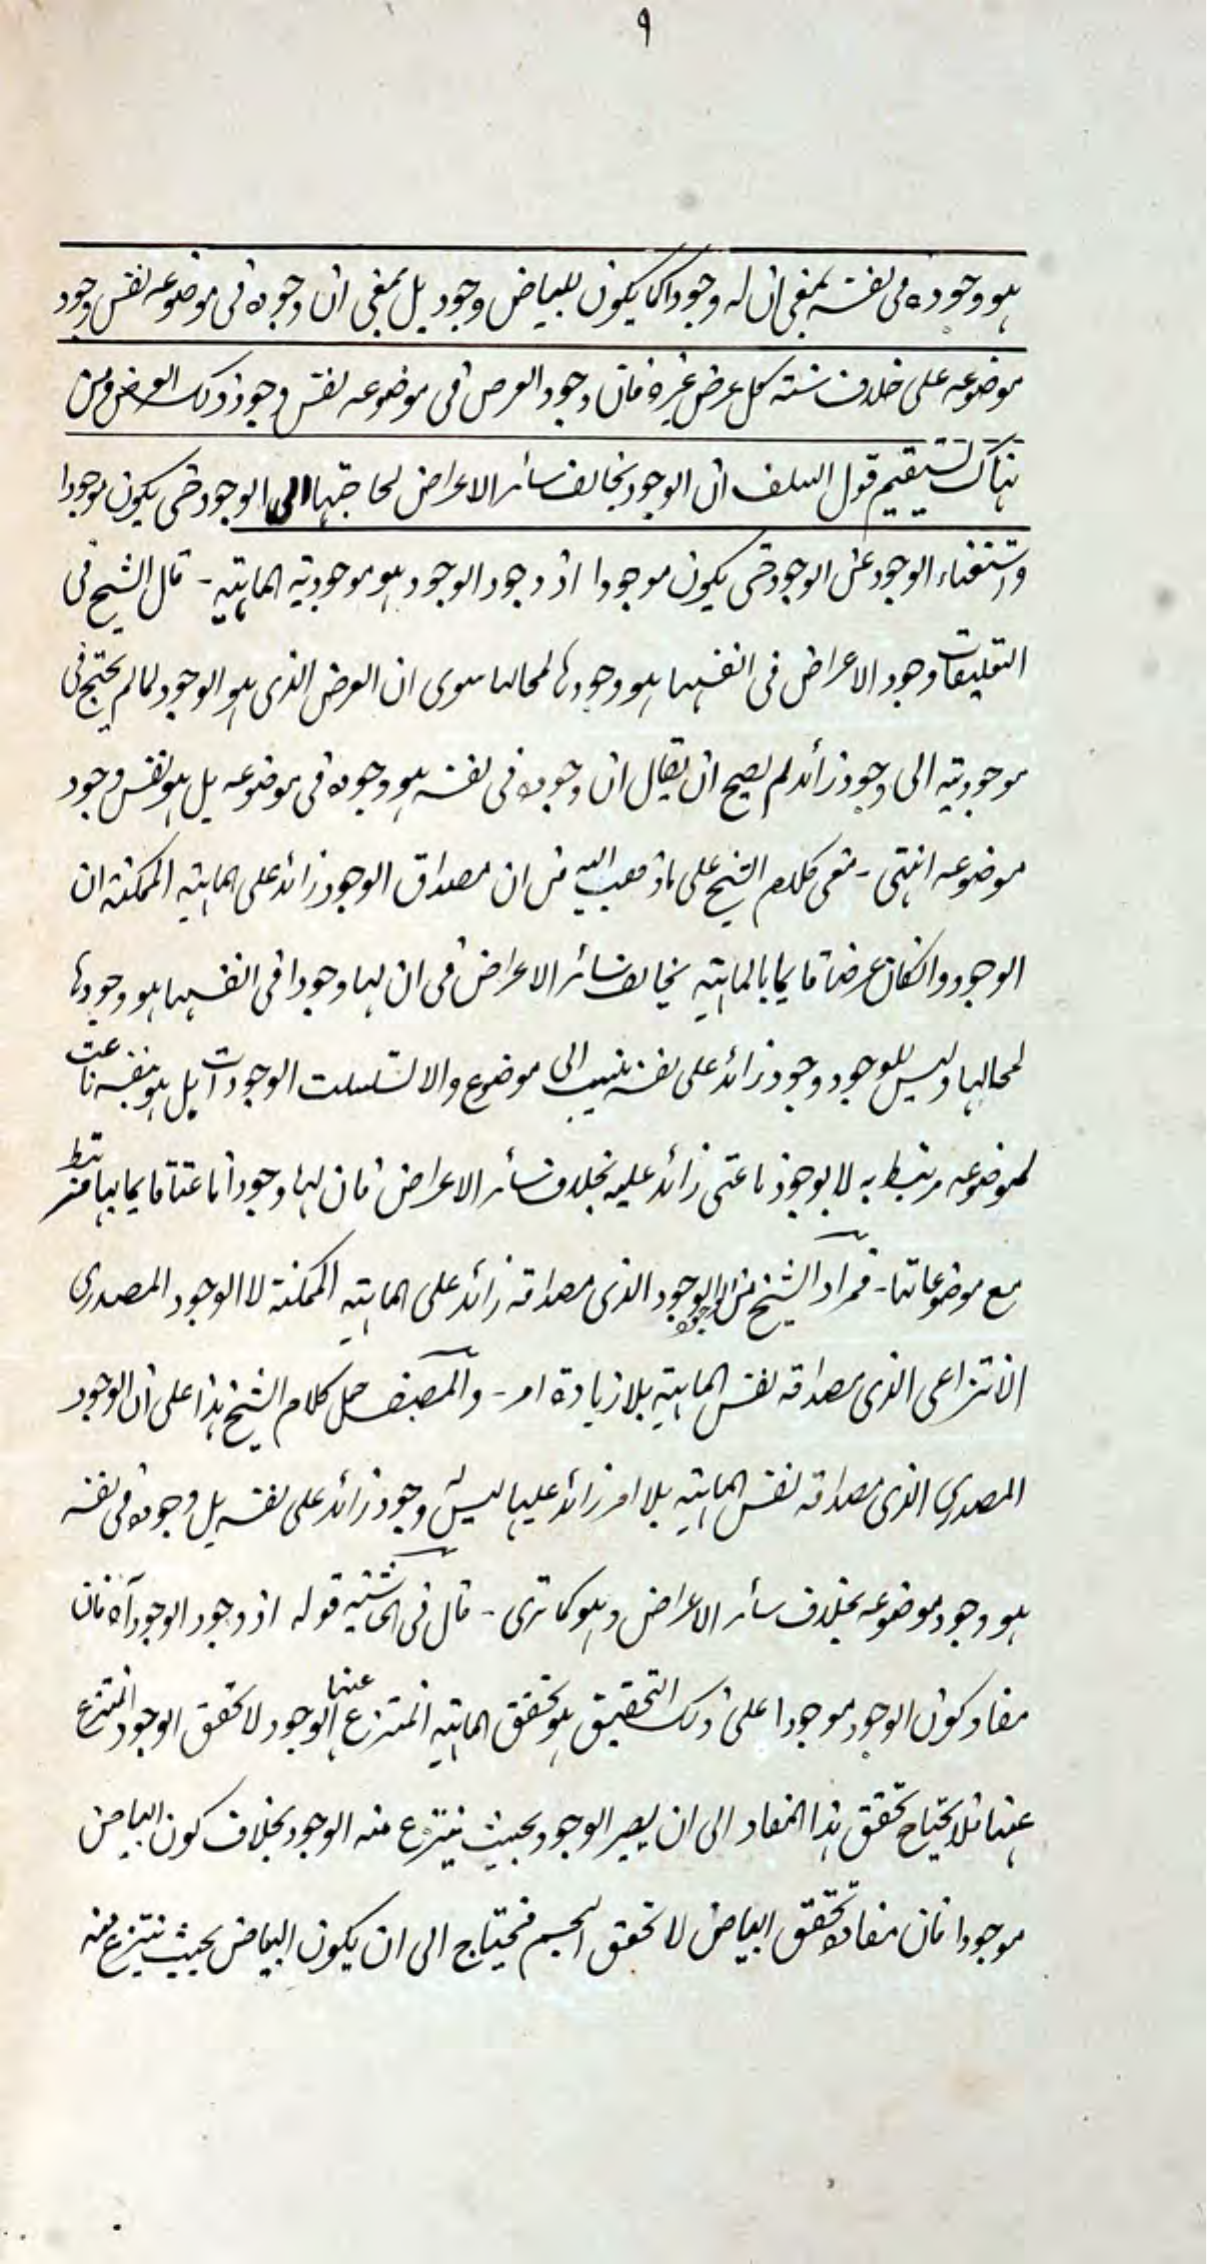 ٩
هو وجوده فى نفسه بمعنى ان له وجودا كما يكون للبياض وجود بل بمعنى ان وجوده فى موضوعه نفس وجود
موضوعه على خلاف سنته كل عرض غيره فان وجود العرض فى موضوعه نفس وجود ذلك العرض ومن
هناك يستقيم قول السلف ان الوجود يخالف سائر الاعراض لحاجتها الى الوجود حتى يكون موجودا
واستغناء الوجود عن الوجود حتى يكون موجودا اذ وجود الوجود هو موجودية الماهية - قال الشيخ فى
التعليقات وجود الاعراض فى انفسها هو وجودها لمحالها سوى ان العرض الذى هو الوجود لما لم يحتج فى
موجوديته الى وجود زائد لم يصح ان يقال ان وجوده فى نفسه هو وجوده فى موضوعه بل هو نفس وجود
موضوعه انتهى - معنى كلام الشيخ على ما ذهب اليه من ان مصداق الوجود زائد على الماهية الممكنة ان
الوجود وانكان عرضا قايما بالماهية يخالف سائر الاعراض فى ان لها وجودا فى انفسها هو وجودها
لمحالها وليس للوجود وجود زائد على نفسه ينسب الى موضوع والا تسلسلت الوجودات بل هو بنفسه ناعت
لموضوعه مرتبط به لا بوجود ناعتى زائد عليه بخلاف سائر الاعراض فان لها وجودا ناعتا قايما بها مرتبط
مع موضوعاتها - فمراد الشيخ من الوجود الوجود الذى مصداقه زائد على الماهية الممكنة لا الوجود المصدرى
الانتزاعى الذى مصداقه نفس الماهية بلا زيادة امر - والمصنف حمل كلام الشيخ هذا على ان الوجود
المصدرى الذى مصداقه نفس الماهية بلا امر زائد عليها ليس له وجود زائد على نفسه بل وجوده فى نفسه
هو وجود موضوعه بخلاف سائر الاعراض وهو كما ترى - قال فى الحاشية قوله اذ وجود الوجود آه فان
مفاد كون الوجود موجودا على ذلك التحقيق هو تحقق الماهية المنتزع عنها الوجود لا تحقق الوجود المنتزع
عنها فلا يحتاج تحقق هذا المفاد الى ان يصير الوجود بحيث ينتزع منه الوجود بخلاف كون البياض
موجودا فان مفاده تحقق البياض لا تحقق الجسم فيحتاج الى ان يكون البياض بحيث ينتزع منه